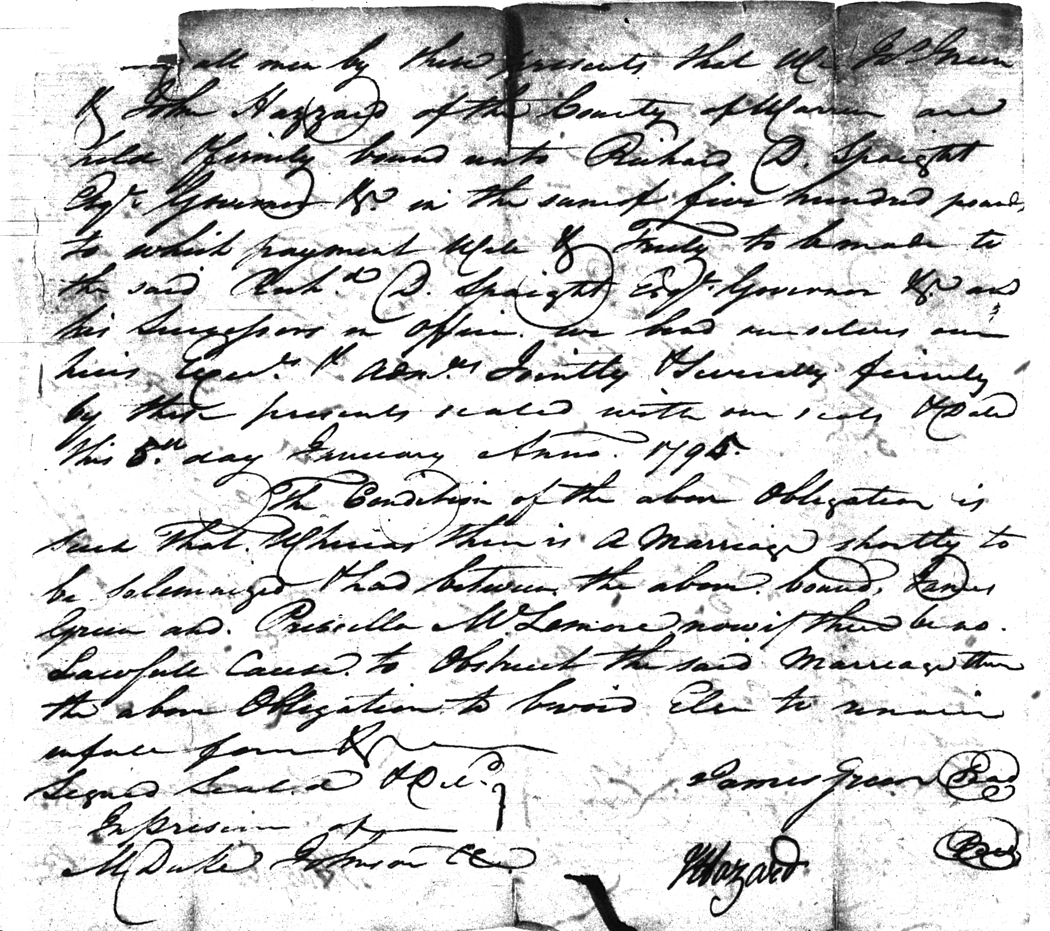 all men by these presents that We Js Green
& John Hazzard of the County of Warren are
held & firmly bound unto Richard D. Spaight
Esqr. Governor &c. in the sum of five hundred pounds
to which payment Well & Truly to be made to
the said Richd. D. Spaight Esqr. Governor &c. and
his Successors in Office we bind ourselves our
heirs Exers. & Admrs Jointly & Severally firmly
by these presents sealed with our seals & Dated
this 8th day January Anno. 1795.
The Condition of the above Obligation is
such That Whereas there is A Marriage shortly to
be Solemnized & had between the above bound, James
Green and Priscilla McLemore now if there be no
Lawfull Cause to Obstruct the said Marriage then
the above Obligation to be void Else to remain
in full force &c
Signed Sealed & Deld.
In presence of
M Duke Johnson CC
James Green Seal
JHazard Seal